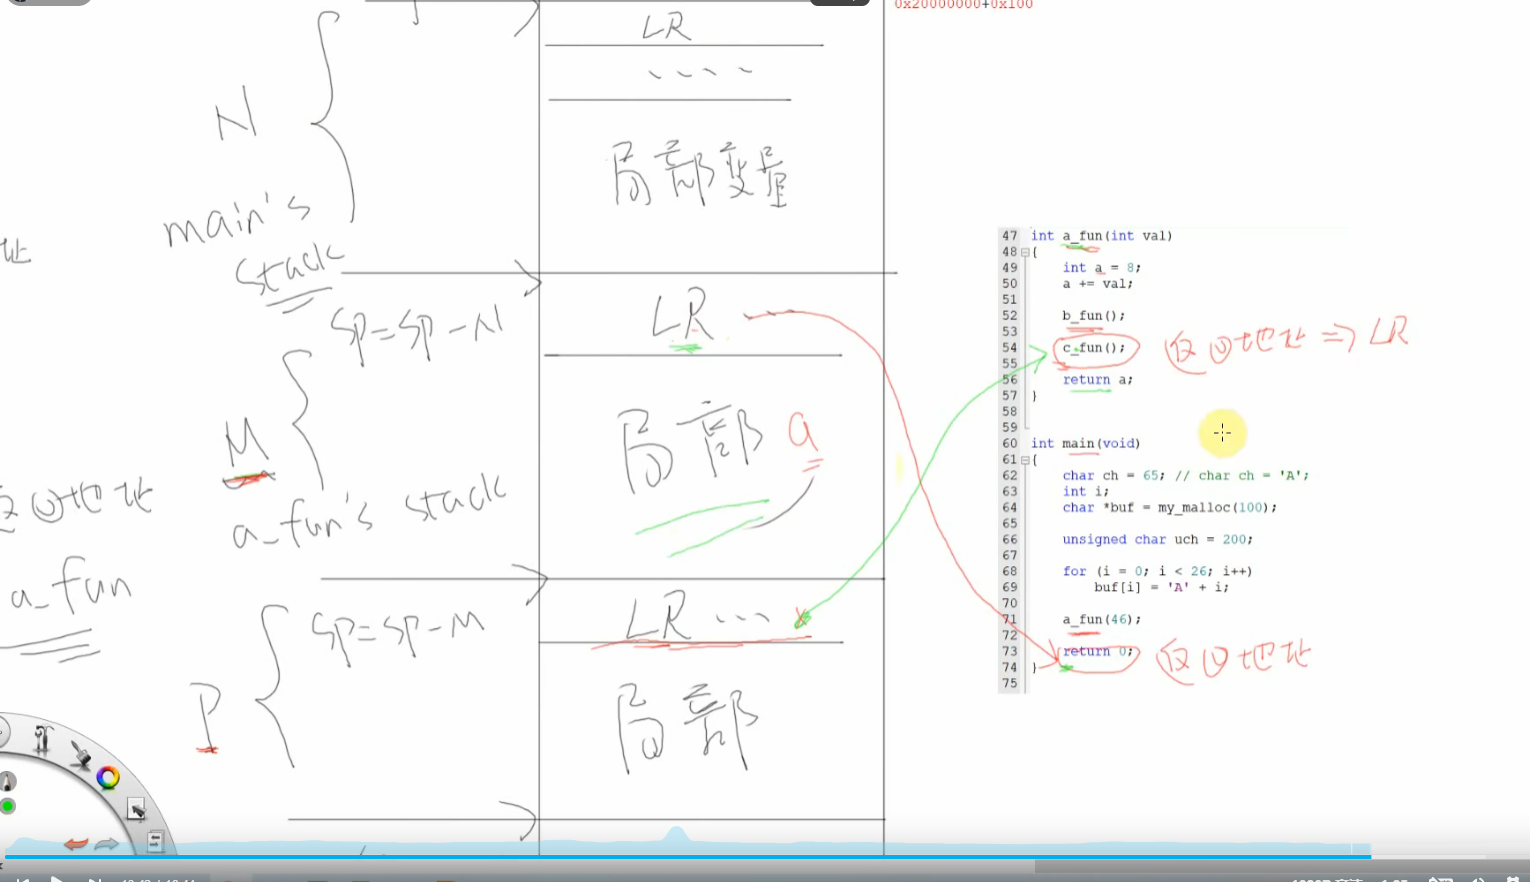 0x20000000+0x100
LR
....
N
局部变量
main's
stack
址
SP=SP-N
LR
M
局部 a
返回地址
a_fun's stack
a_fun
SP=SP-M
LR ...
P
局部
47 int a_fun(int val)
48 {
49 int a = 8;
50 a += val;
51
52 b_fun();
53
54 c_fun(); 返回地址 => LR
55
56 return a;
57 }
58
59
60 int main(void)
61 {
62 char ch = 65; // char ch = 'A';
63 int i;
64 char *buf = my_malloc(100);
65
66 unsigned char uch = 200;
67
68 for (i = 0; i < 26; i++)
69 buf[i] = 'A' + i;
70
71 a_fun(46);
72
73 return 0; 返回地址
74 }
75